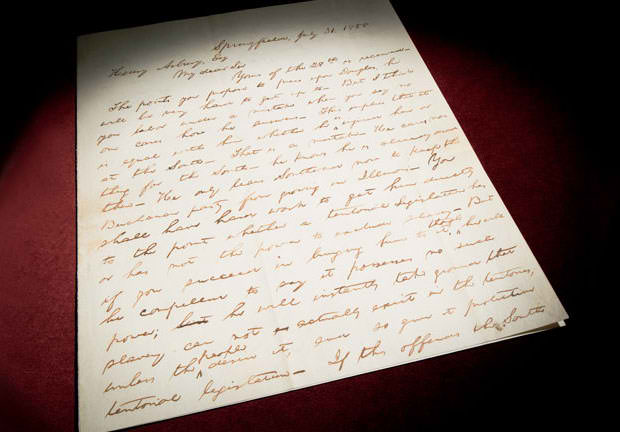 Springfield, July 31, 1858
Henry Asbury, Esq
My dear Sir
Yours of the 28th is received.
The points you propose to press upon Douglas, he
will be very hard to get up to. But I think
you labor under a mistake when you say no
one cares how he answers. This implies that it
is equal with him whether he is injured here or
at the South. That is a mistake. He cares noth-
ing for the South — he knows he is already dead
there. He only leans Southward now to keep the
Buchanan party from growing in Illinois. You
shall have hard work to get him directly
to the point whether a territorial Legislature has
or has not the power to exclude slavery. But
if you succeed in bringing him to it, though he will
be compelled to say it possesses no such
power; he will instantly take ground that
slavery can not actually exist in the territories,
unless the people desire it, and so give it protective
territorial legislation — If this offends the South